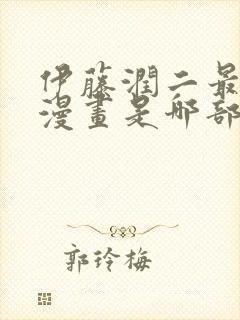 伊藤潤二最
漫畫是哪部
郭玲梅